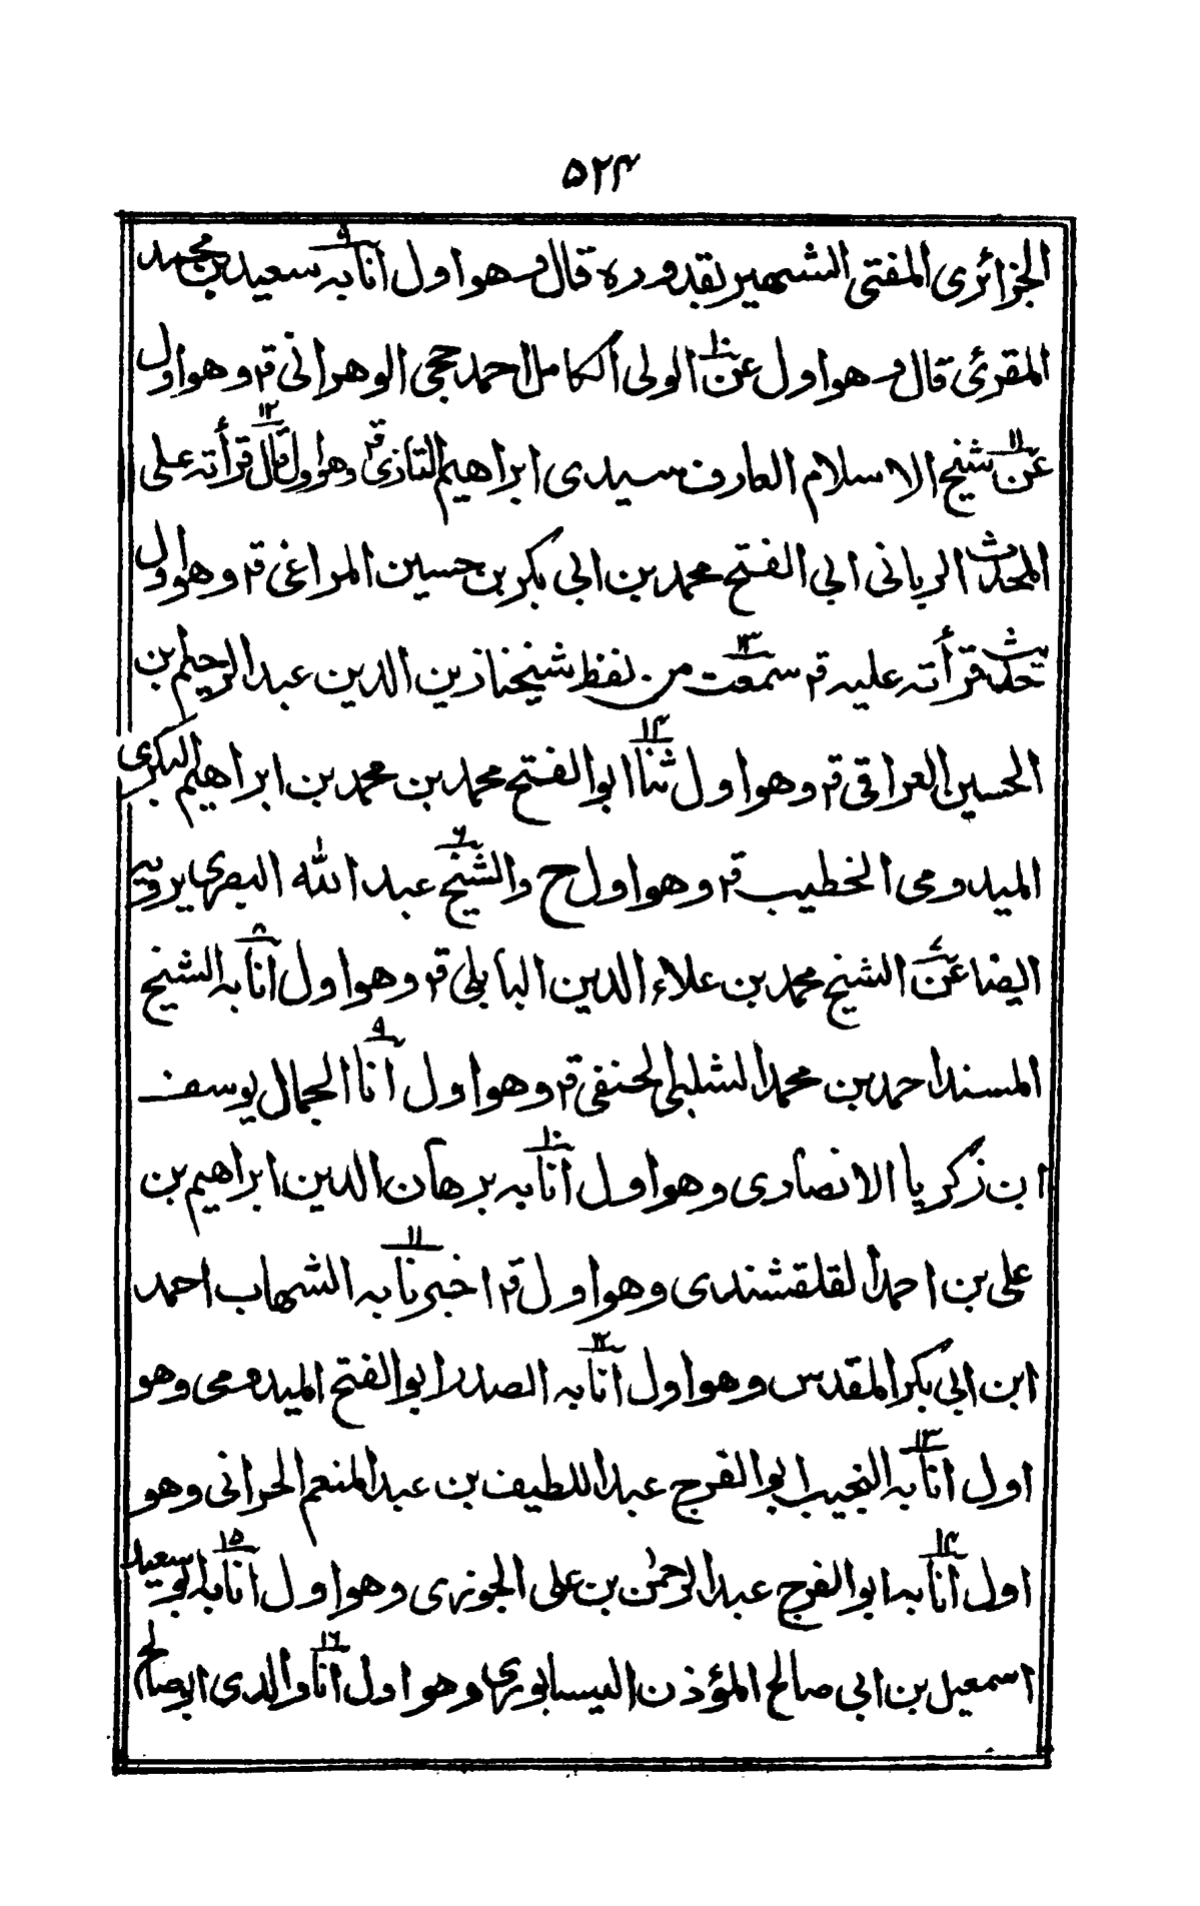 ۵۲۴
الجزائری المفتی الشهیر بقدوره قال وهو اول انا ۹ به سعید بن محمد
المقرئ قال وهو اول عن ۱۰ الولی الکامل احمد حجی الوهرانی قم وهو اول
عن ۱۱ شیخ الاسلام العارف سیدی ابراهیم التازی قم وهو اول قال ۱۲ قرأته علی
المحدث الربانی ابی الفتح محمد بن ابی بکر بن حسین المراغی قم وهو اول
حدیث قرأته علیه قم سمعت ۱۳ من لفظ شیخنا زین الدین عبد الرحیم بن
الحسین العراقی قم وهو اول ثنا ۱۴ ابو الفتح محمد بن محمد بن ابراهیم البکری
المیدومی الخطیب قم وهو اول ح والشیخ ۶ عبد الله البصری یرویه
ایضا عن ۷ الشیخ محمد بن علاء الدین البابلی قم وهو اول انا ۸ به الشیخ
المسند احمد بن محمد الشلبلی الحنفی قم وهو اول انا ۹ الجمال یوسف
ابن زکریا الانصاری وهو اول انا ۱۰ به برهان الدین ابراهیم بن
علی بن احمد القلقشندی وهو اول قم اخبرنا ۱۱ به الشهاب احمد
ابن ابی بکر المقدس وهو اول انا ۱۲ به الصدر ابو الفتح المیدومی وهو
اول انا ۱۳ به النجیب ابو الفرج عبد اللطیف بن عبد المنعم الحرانی وهو
اول انا ۱۴ به ابو الفرج عبد الرحمٰن بن علی الجوزی وهو اول انا ۱۵ به ابو سعید
اسمعیل بن ابی صالح المؤذن الیسابوری وهو اول انا ۱۶ والدی ابو صالح